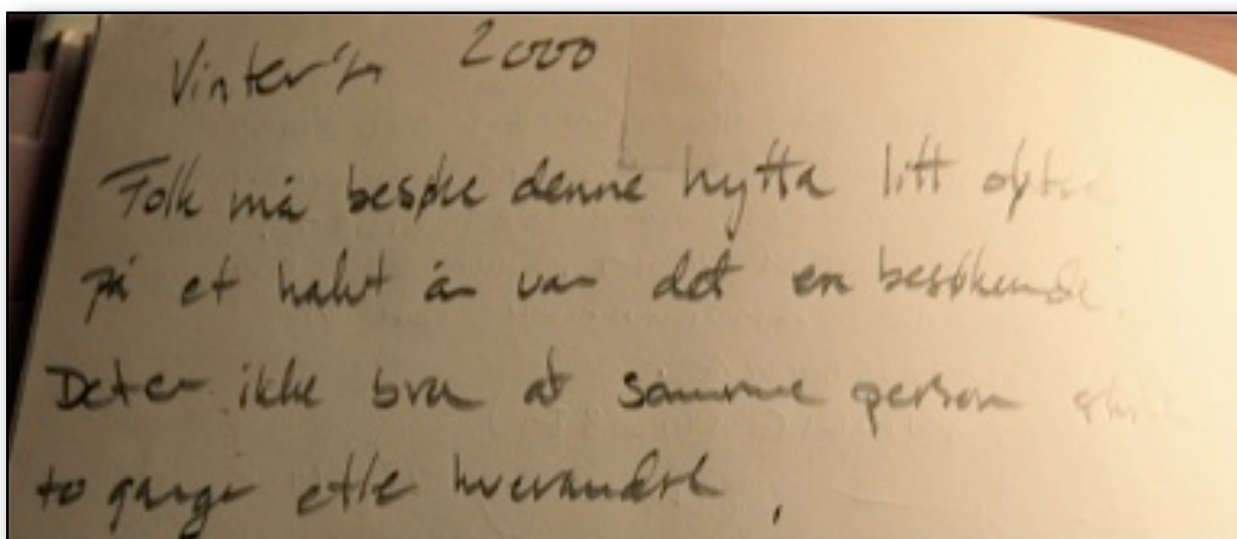 Vinter'n 2000
Folk må besøke denne hytta litt
på et halvt år var det en besøkende.
Det er ikke bra at samme person
to ganger etter hverandre.